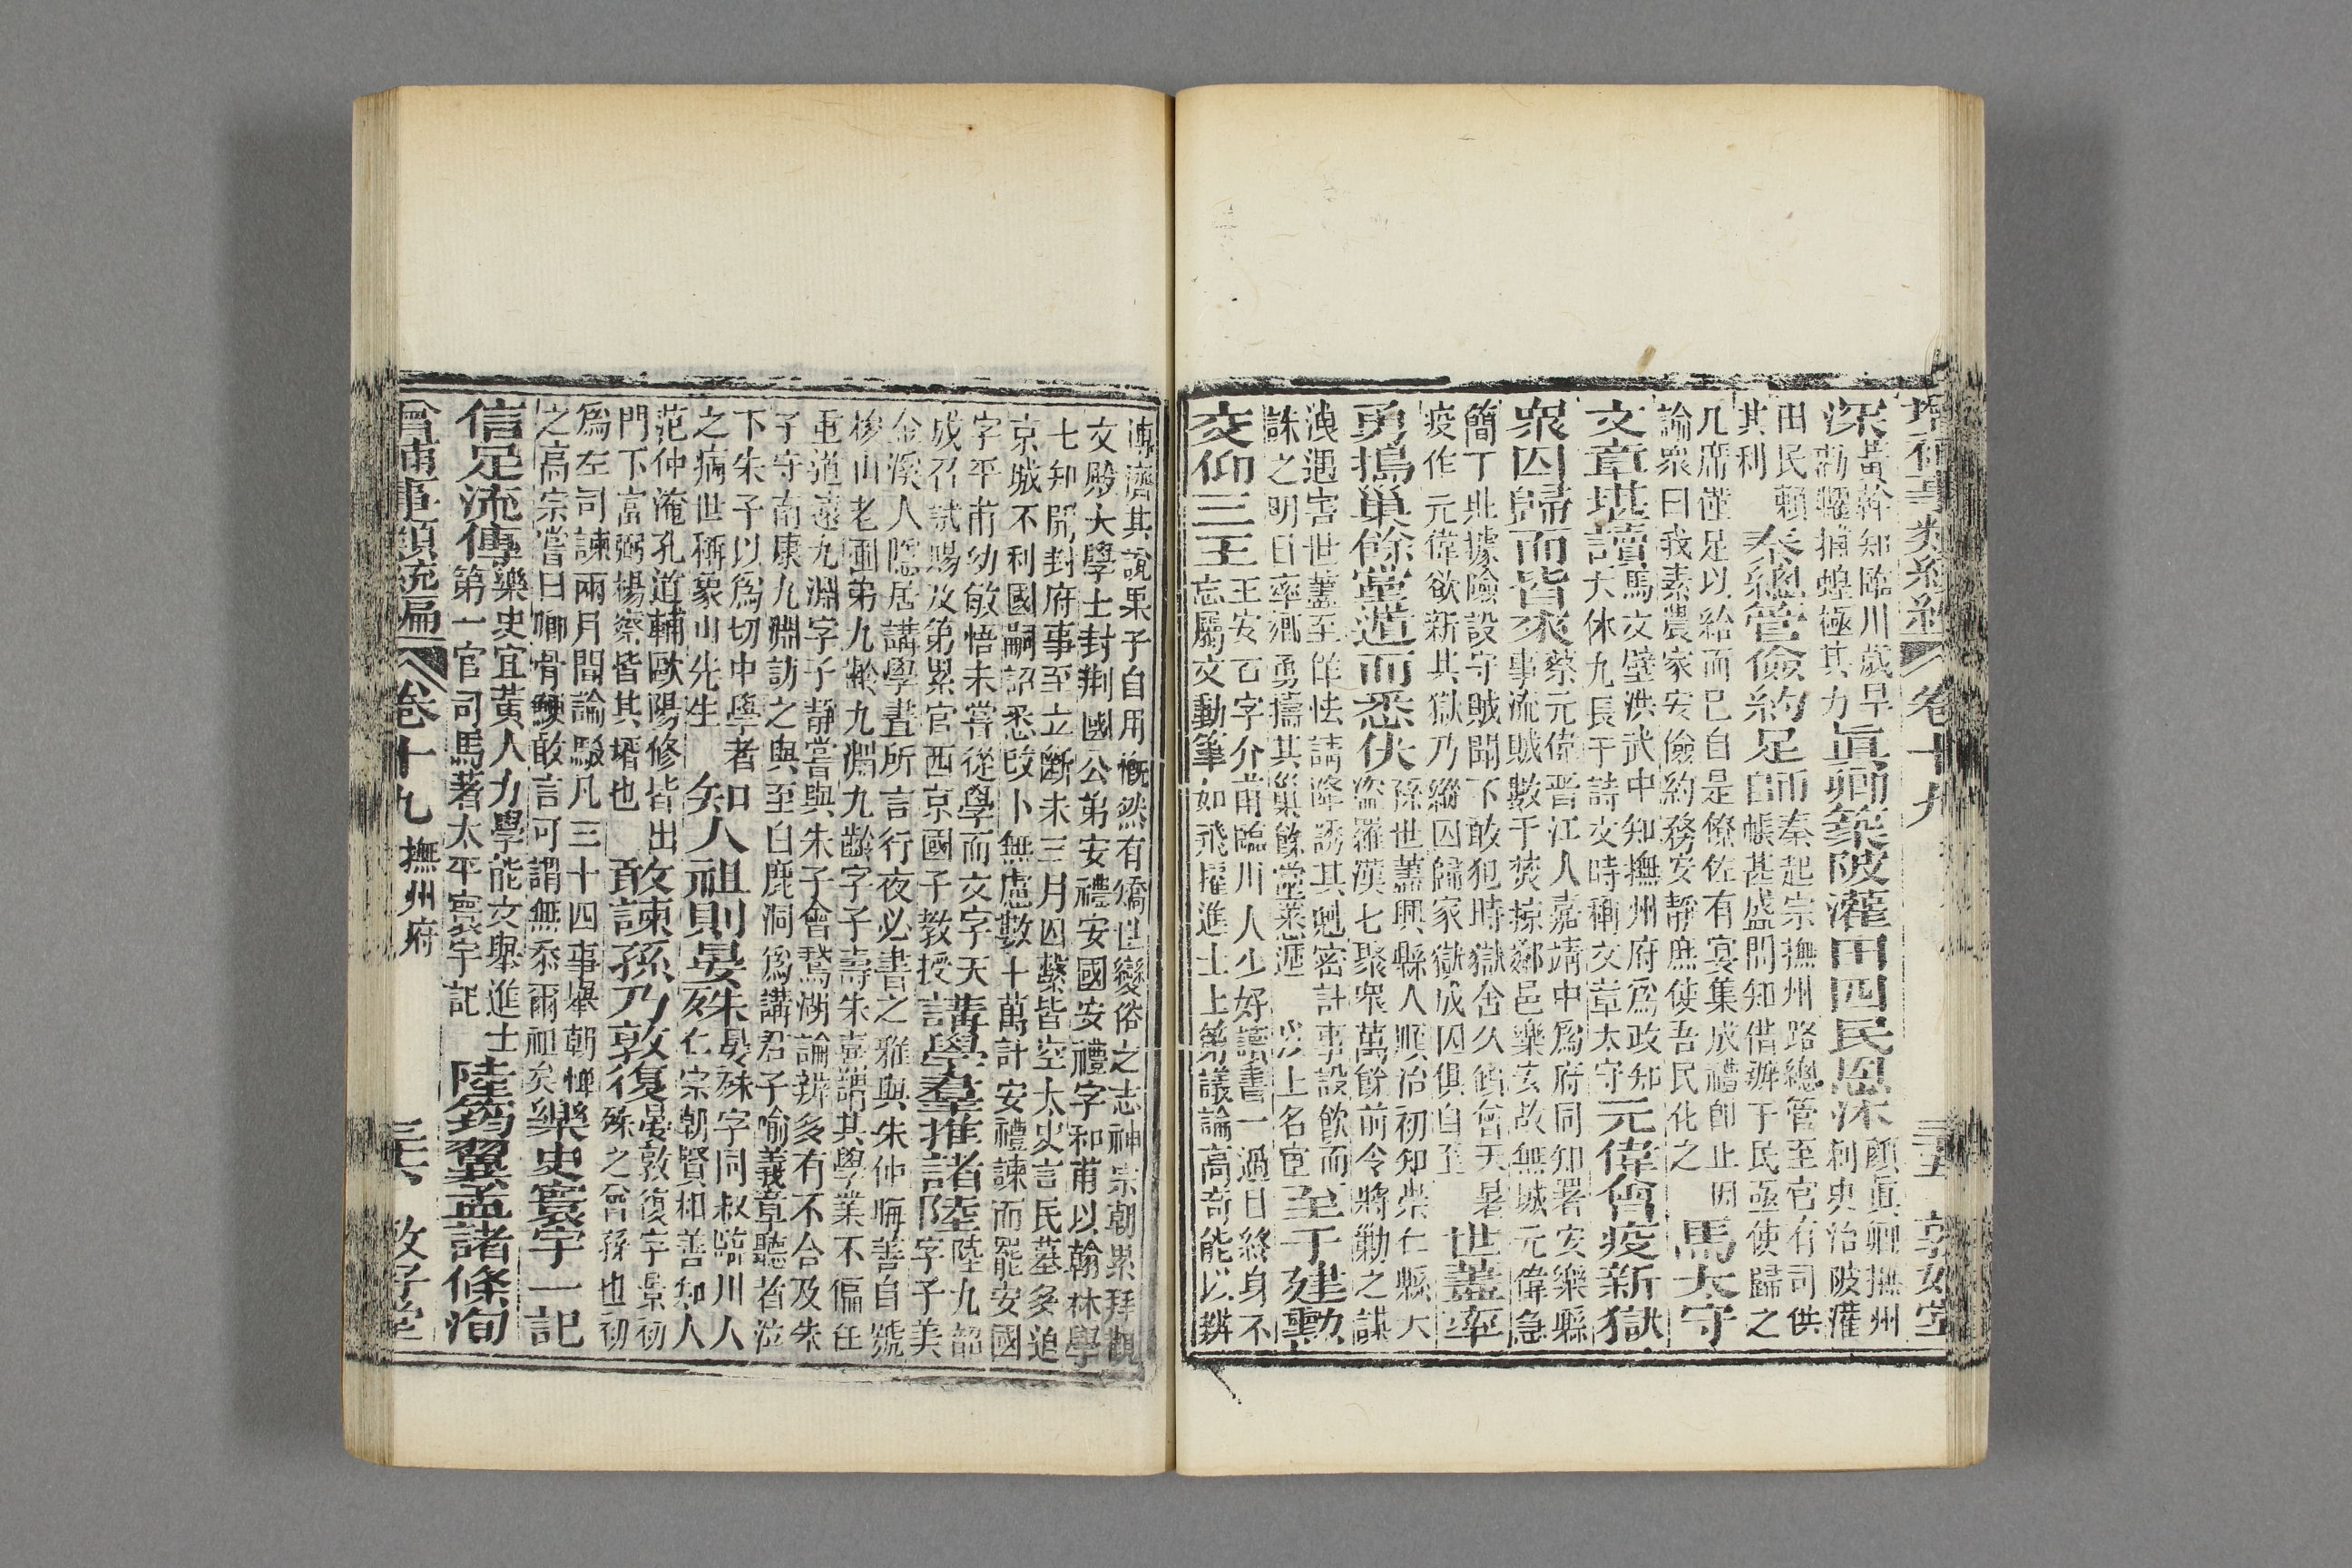 增補事類統編 卷十九 三五 敦好堂
深 黃幹知臨川歲旱
勸糶捕蝗極其力 眞卿築陂灌田四民恩沐 顏眞卿撫州
刺史治陂灌
田民賴
其利 秦總管儉約足師 秦起宗撫州路總管至官有司供
帳甚盛問知借辦于民亟使歸之
几席僅足以給而已自是僚佐有宴集成禮卽止因
諭衆曰我素農家安儉約務安靜庶使吾民化之 馬太守
文章堪讀 馬文璧洪武中知撫州府爲政知
大休尤長于詩文時稱文章太守 元偉會疫新獄
衆囚歸而皆來 蔡元偉晋江人嘉靖中爲府同知署安樂縣
事流賊數千焚掠鄰邑樂安故無城元偉急
簡丁壯據險設守賊聞不敢犯時獄舍久飭會天暑
疫作元偉欲新其獄乃縱囚歸家獄成囚俱自至 世蓋率
勇搗巢餘黨遁而悉伏 孫世蓋興縣人順治初知崇仁縣大
盜羅漢七聚衆萬餘前令將勦之謀
洩遇害世蓋至佯怯請降誘其尅密計事設飮而
誅之明日率鄕勇擣其巢餘黨悉遁 以上名宦 至于建勳
交仰三王 王安石字介甫臨川人少好讀書一過目終身不
忘屬文動筆如飛擢進士上第議論高奇能以辨
博濟其說果于自用慨然有矯世變俗之志神宗朝累拜觀
文殿大學士封荆國公弟安禮安國安禮字和甫以翰林學
七知開封府事至立斷未三月囚繫皆空太史言民墓多迫
京城不利國嗣詔悉改卜無慮數十萬計安禮諫而罷安國
字平甫幼敏悟未嘗從學而文字天
成召試賜及第累官西京國子敎授 講學羣推諸陸 陸九韶
字子美
金溪人隱居講學晝所言行夜必書之雅與朱仲晦善自號
梭山老圃弟九齡九淵九齡字子壽朱熹謂其學業不偏任
重道遠九淵字子靜嘗與朱子會鵞湖論辨多有不合及朱
子守南康九淵訪之與至白鹿洞爲講君子喻義章聽者泣
下朱子以爲切中學者
之病世稱象山先生 知人祖則晏殊 晏殊字同叔臨川人
仁宗朝賢相善知人
范仲淹孔道輔歐陽修皆出
門下富弼楊察皆其壻也 敢諫孫乃敦復 晏敦復字景初
殊之曾孫也初
爲左司諫兩月間論駁凡三十四事舉朝憚
之高宗嘗曰卿骨鯁敢言可謂無忝爾祖矣 樂史寰宇一記
信足流傳 樂史宜黃人力學能文舉進士
第一官司馬著太平寰宇記 陸筠翼孟諸條洵
增補事類統編 卷十九 撫州府 三六 敦好堂